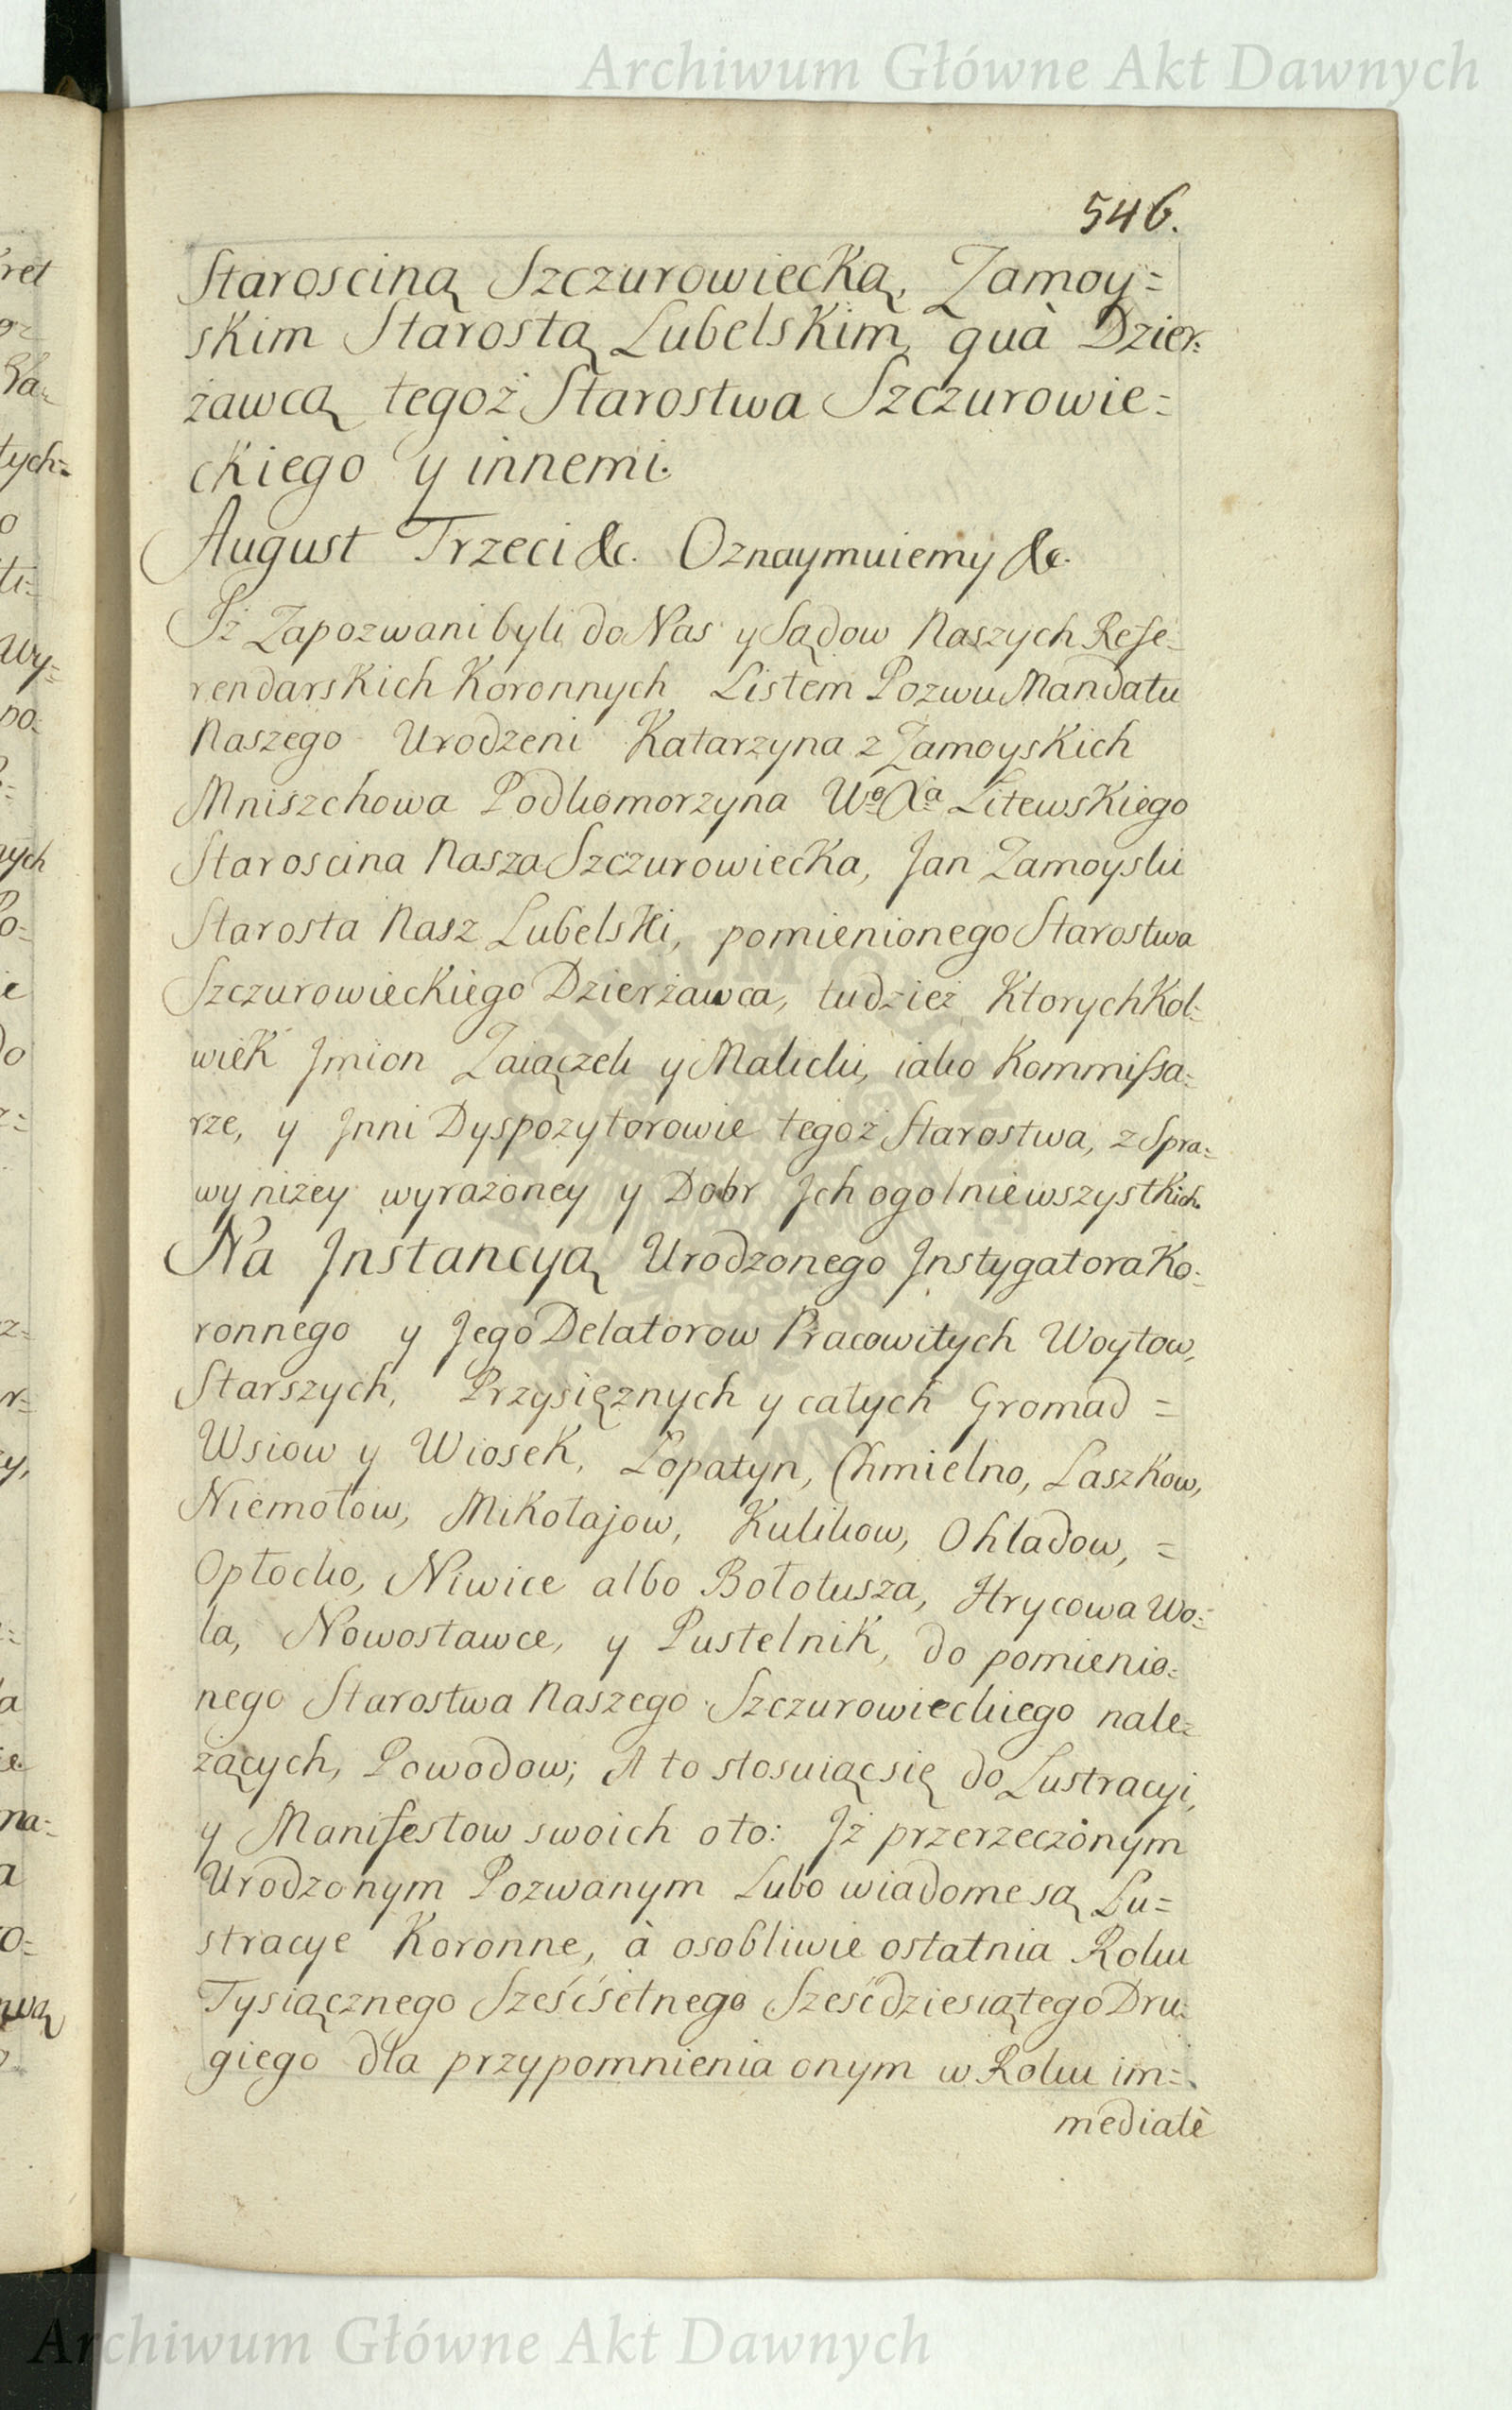 Archiwum Główne Akt Dawnych
546.
Starosciną Szczurowiecką, Zamoy=
skim Starostą Lubelskim, quà Dzier=
żawcą tegoż Starostwa Szczurowie=
ckiego y innemi.
August Trzeci &c. Oznaymuiemy &c.
Iż Zapozwani byli do Nas y Sądow Naszych Refe=
rendarskich Koronnych Listem Pozwu Mandatu
Naszego Urodzeni Katarzyna z Zamoyskich
Mniszchowa Podkomorzyna Wo Xa Litewskiego
Staroscina Nasza Szczurowiecka, Jan Zamoyski
Starosta Nasz Lubelski, pomienionego Starostwa
Szczurowieckiego Dzierżawca, tudzież Ktorychkol=
wiek Jmion Zaiączek y Malicki, iako Kommissa=
rze, y Jnni Dyspozytorowie tegoż Starostwa, z Spra=
wy niżey wyrażoney y Dobr Jch ogolnie wszystkich.
Na Jnstancyą Urodzonego Jnstygatora Ko=
ronnego y Jego Delatorow Pracowitych Woytow,
Starszych, Przysięznych y całych Gromad =
Wsiow y Wiosek, Łopatyn, Chmielno, Laszkow,
Niemołow, Mikołajow, Kulikow, Ohladow, =
Opłocko, Niwice albo Bołotusza, Hrycowa Wo=
la, Nowostawce, y Pustelnik, do pomienio=
nego Starostwa Naszego Szczurowieckiego nale=
żących, Powodow; A to stosuiąc się do Lustracyi,
y Manifestow swoich oto: Jż przerzeczonym
Urodzonym Pozwanym Lubo wiadome są Lu=
stracye Koronne, à osobliwie ostatnia Roku
Tysiącznego Sześćsetnego Sześćdziesiątego Dru=
giego dla przypomnienia onym w Roku im=
mediatè
Archiwum Główne Akt Dawnych